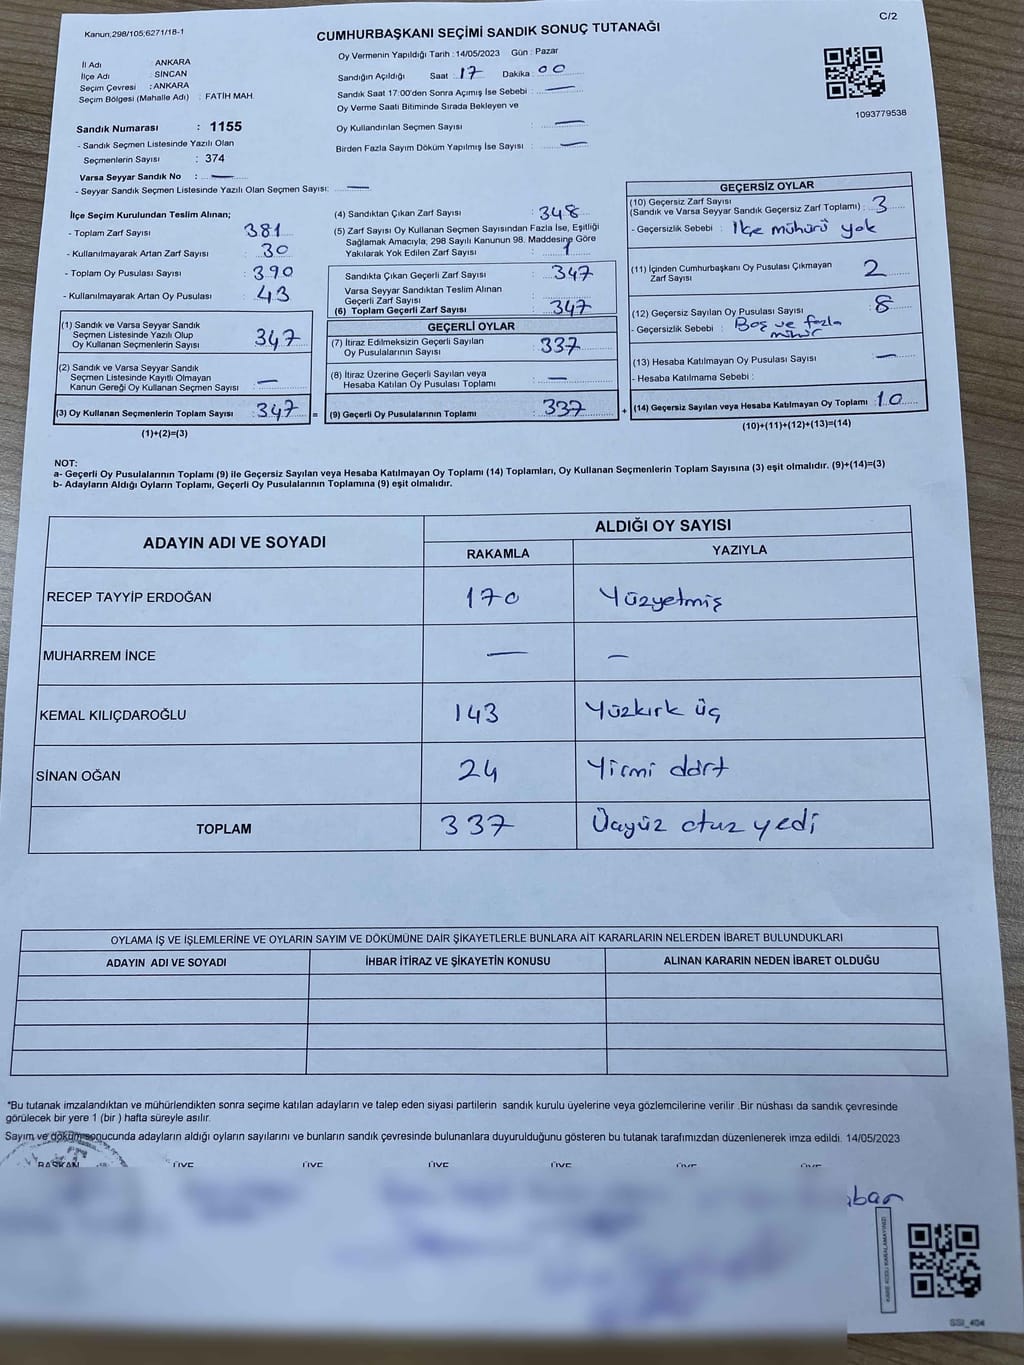 C/2
Kanun,298/105,6271/18-1
CUMHURBAŞKANI SEÇİMİ SANDIK SONUÇ TUTANAĞI
İl Adı : ANKARA
İlçe Adı : SİNCAN
Seçim Çevresi : ANKARA
Seçim Bölgesi (Mahalle Adı) : FATİH MAH.
Sandık Numarası : 1155
- Sandık Seçmen Listesinde Yazılı Olan
Seçmenlerin Sayısı : 374
Varsa Seyyar Sandık No : —
- Seyyar Sandık Seçmen Listesinde Yazılı Olan Seçmen Sayısı: —
Oy Vermenin Yapıldığı Tarih : 14/05/2023 Gün : Pazar
Sandığın Açıldığı Saat : 17 Dakika : 00
Sandık Saat 17:00'den Sonra Açımış İse Sebebi : —
Oy Verme Saati Bitiminde Sırada Bekleyen ve
Oy Kullandırılan Seçmen Sayısı : —
Birden Fazla Sayım Döküm Yapılmış İse Sayısı : —
1093779538
İlçe Seçim Kurulundan Teslim Alınan;
- Toplam Zarf Sayısı : 381
- Kullanılmayarak Artan Zarf Sayısı : 30
- Toplam Oy Pusulası Sayısı : 390
- Kullanılmayarak Artan Oy Pusulası : 43
(1) Sandık ve Varsa Seyyar Sandık
Seçmen Listesinde Yazılı Olup
Oy Kullanan Seçmenlerin Sayısı : 347
(2) Sandık ve Varsa Seyyar Sandık
Seçmen Listesinde Kayıtlı Olmayan
Kanun Gereği Oy Kullanan Seçmen Sayısı : —
(3) Oy Kullanan Seçmenlerin Toplam Sayısı : 347 =
(1)+(2)=(3)
(4) Sandıktan Çıkan Zarf Sayısı : 348
(5) Zarf Sayısı Oy Kullanan Seçmen Sayısından Fazla İse, Eşitliği
Sağlamak Amacıyla; 298 Sayılı Kanunun 98. Maddesine Göre
Yakılarak Yok Edilen Zarf Sayısı : 1
Sandıkta Çıkan Geçerli Zarf Sayısı : 347
Varsa Seyyar Sandıktan Teslim Alınan
Geçerli Zarf Sayısı :
(6) Toplam Geçerli Zarf Sayısı : 347
GEÇERLİ OYLAR
(7) İtiraz Edilmeksizin Geçerli Sayılan
Oy Pusulalarının Sayısı : 337
(8) İtiraz Üzerine Geçerli Sayılan veya
Hesaba Katılan Oy Pusulası Toplamı : —
(9) Geçerli Oy Pusulalarının Toplamı : 337 +
GEÇERSİZ OYLAR
(10) Geçersiz Zarf Sayısı
(Sandık ve Varsa Seyyar Sandık Geçersiz Zarf Toplamı) : 3
- Geçersizlik Sebebi : İlçe mühürü yok
(11) İçinden Cumhurbaşkanı Oy Pusulası Çıkmayan
Zarf Sayısı : 2
(12) Geçersiz Sayılan Oy Pusulası Sayısı : 8
- Geçersizlik Sebebi : Boş ve fazla
mühür
(13) Hesaba Katılmayan Oy Pusulası Sayısı : —
- Hesaba Katılmama Sebebi :
(14) Geçersiz Sayılan veya Hesaba Katılmayan Oy Toplamı : 10
(10)+(11)+(12)+(13)=(14)
NOT:
a- Geçerli Oy Pusulalarının Toplamı (9) ile Geçersiz Sayılan veya Hesaba Katılmayan Oy Toplamı (14) Toplamları, Oy Kullanan Seçmenlerin Toplam Sayısına (3) eşit olmalıdır. (9)+(14)=(3)
b- Adayların Aldığı Oyların Toplamı, Geçerli Oy Pusulalarının Toplamına (9) eşit olmalıdır.
ADAYIN ADI VE SOYADI ALDIĞI OY SAYISI
RAKAMLA YAZIYLA
RECEP TAYYİP ERDOĞAN 170 Yüzyetmiş
MUHARREM İNCE — —
KEMAL KILIÇDAROĞLU 143 Yüzkırk üç
SİNAN OĞAN 24 Yirmi dört
TOPLAM 337 Üçyüz otuz yedi
OYLAMA İŞ VE İŞLEMLERİNE VE OYLARIN SAYIM VE DÖKÜMÜNE DAİR ŞİKAYETLERLE BUNLARA AİT KARARLARIN NELERDEN İBARET BULUNDUKLARI
ADAYIN ADI VE SOYADI İHBAR İTİRAZ VE ŞİKAYETİN KONUSU ALINAN KARARIN NEDEN İBARET OLDUĞU
*Bu tutanak imzalandıktan ve mühürlendikten sonra seçime katılan adayların ve talep eden siyasi partilerin sandık kurulu üyelerine veya gözlemcilerine verilir .Bir nüshası da sandık çevresinde
görülecek bir yere 1 (bir ) hafta süreyle asılır.
Sayım ve döküm sonucunda adayların aldığı oyların sayılarını ve bunların sandık çevresinde bulunanlara duyurulduğunu gösteren bu tutanak tarafımızdan düzenlenerek imza edildi. 14/05/2023
BAŞKAN ÜYE ÜYE ÜYE ÜYE ÜYE ÜYE
SSI_404